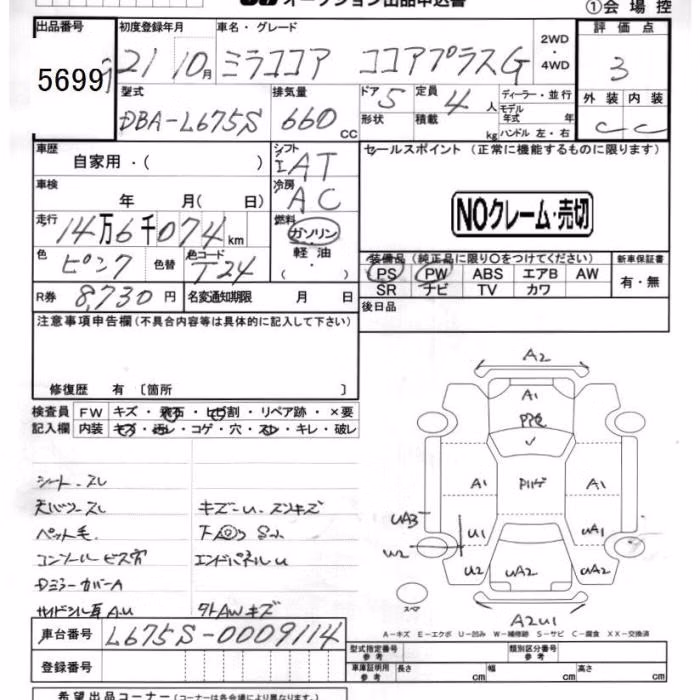 オークション出品申込書
①会場控
出品番号 初度登録年月 車名・グレード 2WD・4WD 評価点
5699 21 10月 ミラココア ココアプラスG 3
型式 排気量 ドア 5 定員 4人 ディーラー・並行 外装 内装
DBA-L675S 660cc 形状 積載 kg モデル年式 年 C C
ハンドル 左・右
車歴 自家用・( ) シフト IAT セールスポイント (正常に機能するものに限ります)
車検 年 月( 日) 冷房 AC
NOクレーム・売切
走行 14万6千074km 燃料 ガソリン 軽油 ・( )
色 ピンク 色替 色コード T24 装備品 (純正品に限り○をつけてください) 新車保証書
PS PW ABS エアB AW 有・無
SR ナビ TV カワ
R券 8,730円 名変通知期限 月 日 後日品
注意事項申告欄 (不具合内容等は具体的に記入して下さい)
修復歴 有 〔箇所 〕
検査員 FW キズ・飛石・ヒビ割・リペア跡・×要
記入欄 内装 キズ・汚レ・コゲ・穴・スレ・キレ・破レ
シート・スレ
天バリ・スレ キズ・U・スリキズ
ペット毛
コンソールービス穴 エンドパネルU
DミラーカバーA
外AWキズ
A2
A1
A1 A1
UA3 U1 UA1
U2 U2 UA2 UA2
スペア A2U1
A-キズ E-エクボ U-凹み W-補修跡 S-サビ C-腐食 XX-交換済
車台番号 L675S-0009114
登録番号
型式指定番号 参考 類別区分番号 参考
車庫証明用 参考 長さ cm 幅 cm 高さ cm
希望出品コーナー (コーナーは各会場により異なります。)